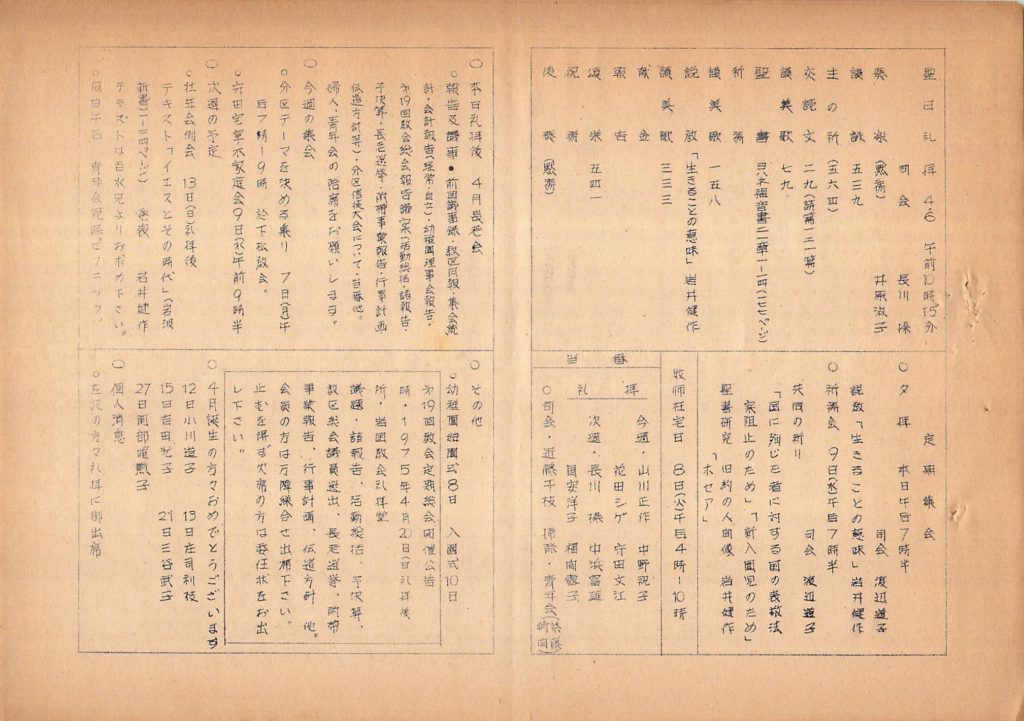 聖日礼拝 4.6 午前10時15分
司会 長川 操
奏楽 (黙祷) 井原淑子
讃詠 五三九
主の祈 (五六四)
交読文 二九(詩篇一二一篇)
讃美歌 七九
聖書 ヨハネ福音書二一章一-一四(一七七ページ)
祈祷
讃美歌 一五八
説教 「生きることの意味」 岩井健作
讃美歌 三三三
献金
報告
頌栄 五四一
祝祷
後奏 (黙祷)
定期集会
○夕拝 本日午后7時半
司会 渡辺道子
説教「生きることの意味」岩井健作
○祈祷会 9日(水)午后7時半
司会 渡辺道子
共同の祈り
「国に殉じた者に対する国の表敬法
案阻止のため」「新入園児のため」
聖書研究 旧約の人間像 岩井健作
「ホセア」
牧師在宅日 8日(火)午后4時-10時
当番
礼拝
今週・山川正作 中野祝子
花田シゲ 守田文江
次週・長川 操 中浜富雄
国安洋子 福尚露子
○司会・近藤千枝
○本日礼拝後 4月長老会
○報告及議事●前回議事録・教区回報・集会統
計・会計報告(経常・自立)・幼稚園理事会報告・
第19回教会総会報告議案(活動総括・諸報告・
予決算・長老選挙・附帯事業報告・行事計画
伝道方針等)・分区信徒大会について・当番他。
婦人、青年会の陪席をお願いします。
○今週の集会
○分区テーマを決める集り 7日(月)午
后7時-9時 於下松教会。
○安田宅草木家庭会9日(水)午前9時半
○次週の予定
○社年会例会 13日(日)礼拝後
テキスト「イエスとその時代」(岩波
新書)(1-34ページ) 発表 岩井健作
テキストは吉水兄よりおもとめ下さい。
○同日午后 青年会親睦ピクニック。
○その他
○幼稚園始園式8日 入園式10日
第19回教会定期総会開催公告
時・1975年4月20日(日)礼拝後
所・岩国教会礼拝堂
議題・諸報告、活動総括、予決算、
教区総会議員選出、長老選挙、附帯
事業報告、行事計画、伝道方針、他。
会員の方は万障繰合せ出席下さい。
止むを得ず欠席の方は委任状をお出
し下さい。
○4月誕生の方々おめでとうございます
12日小川道子 13日庄司利枝
15日吉田光子 21日三谷武子
27日岡部唯勲子
○個人消息
○左記の方々礼拝に御出席